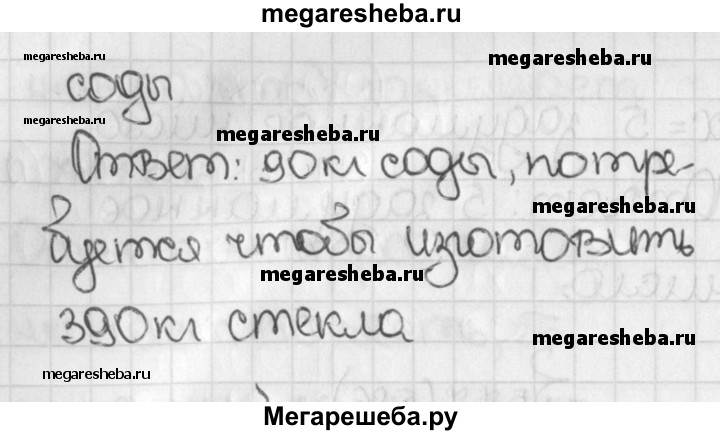 megaresheba.ru
megaresheba.ru megaresheba.ru
соды
megaresheba.ru megaresheba.ru
Ответ: 90кг соды, потре-
megaresheba.ru
буется чтобы изготовить
megaresheba.ru
390кг стекла
megaresheba.ru
megaresheba.ru
Мегарешеба.ру